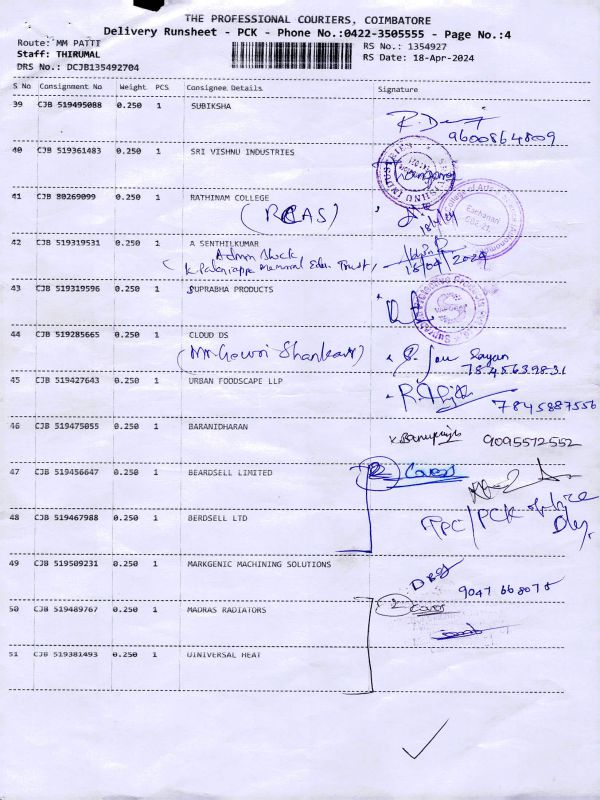 THE PROFESSIONAL COURIERS, COIMBATORE
Delivery Runsheet - PCK - Phone No.:0422-3505555 - Page No.:4
Route: MM PATTI RS No.: 1354927
Staff: THIRUMAL RS Date: 18-Apr-2024
DRS No.: DCJB135492704
S No Consignment No Weight PCS Consignee Details Signature
39 CJB 519495088 0.250 1 SUBIKSHA
9600864809
40 CJB 519361483 0.250 1 SRI VISHNU INDUSTRIES
41 CJB 80269099 0.250 1 RATHINAM COLLEGE
(RCAS) 18/4/24
42 CJB 519319531 0.250 1 A SENTHILKUMAR
Admn Block
18/04/2024
43 CJB 519319596 0.250 1 SUPRABHA PRODUCTS
44 CJB 519285665 0.250 1 CLOUD DS
(Mr. Gowri Shankar)
45 CJB 519427643 0.250 1 URBAN FOODSCAPE LLP
7845887556
46 CJB 519475055 0.250 1 BARANIDHARAN
9095572552
47 CJB 519456647 0.250 1 BEARDSELL LIMITED
2 Covers
48 CJB 519467988 0.250 1 BERDSELL LTD
TPC/PCK
49 CJB 519509231 0.250 1 MARKGENIC MACHINING SOLUTIONS
50 CJB 519489767 0.250 1 MADRAS RADIATORS
2 Cover
51 CJB 519381493 0.250 1 UINIVERSAL HEAT